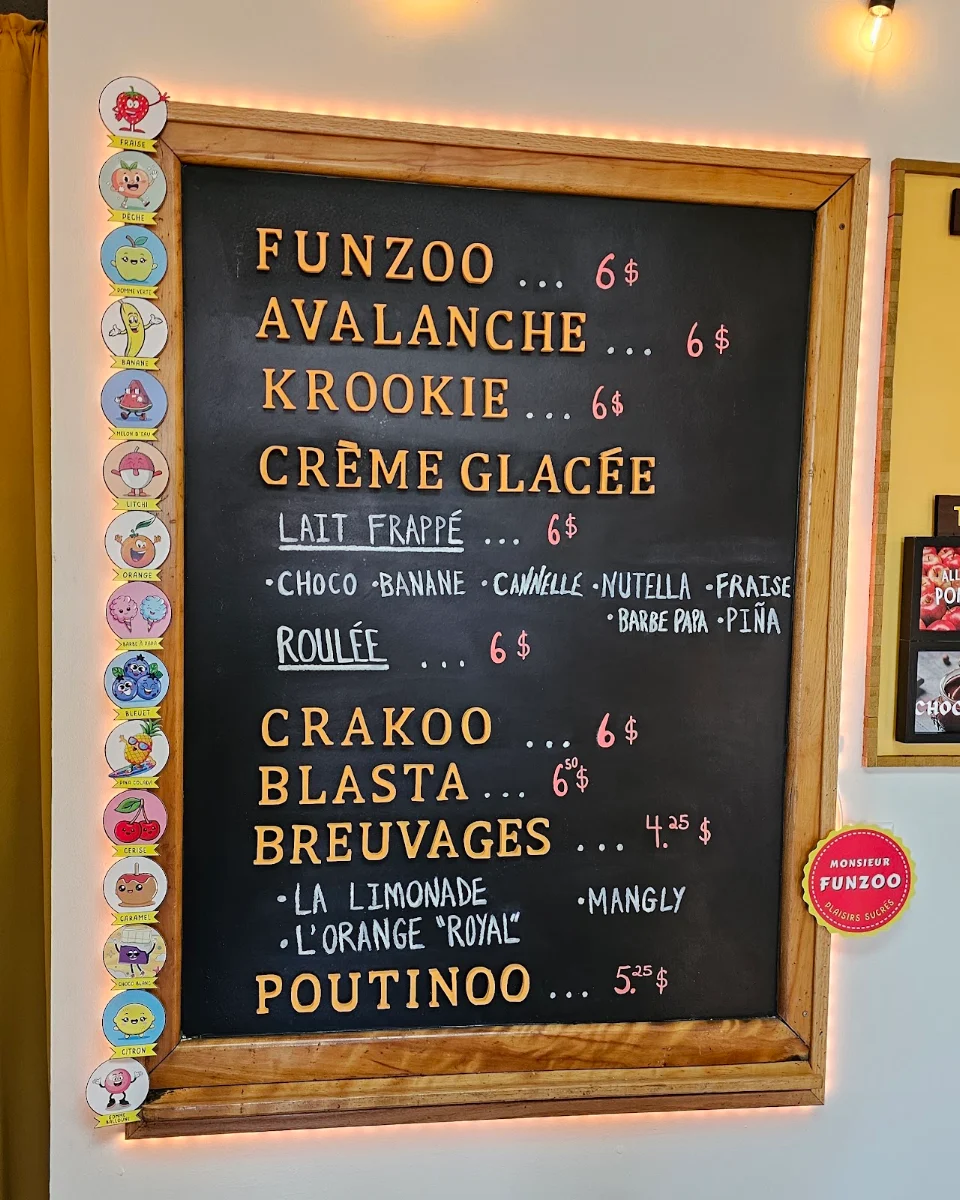 FUNZOO ... 6$
AVALANCHE ... 6$
KROOKIE ... 6$
CRÈME GLACÉE
LAIT FRAPPÉ ... 6$
•CHOCO •BANANE •CANNELLE •NUTELLA •FRAISE
•BARBE PAPA •PIÑA
ROULÉE ... 6$
CRAKOO ... 6$
BLASTA ... 6⁵⁰$
BREUVAGES ... 4.²⁵$
•LA LIMONADE •MANGLY
•L'ORANGE "ROYAL"
POUTINOO ... 5.²⁵$
FRAISE
PÊCHE
POMME VERTE
BANANE
MELON D'EAU
LITCHI
ORANGE
BARBE À PAPA
BLEUET
PINA COLADA
CERISE
CARAMEL
CHOCO BLANC
CITRON
GOMME BALLOUNE
MONSIEUR
FUNZOO
PLAISIRS SUCRÉS